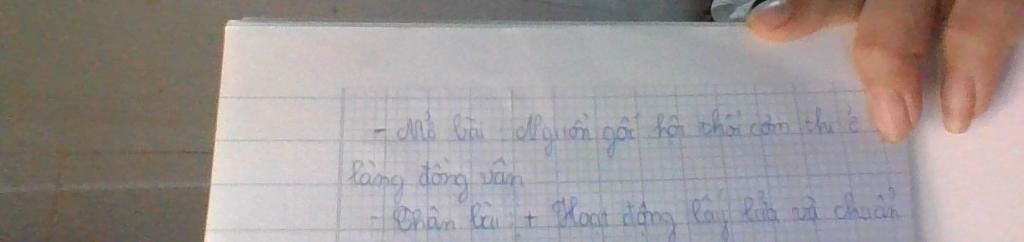 - Mở bài: Nguồn gốc hội thổi cơm thi ở
làng đồng vân
- Thân bài: + Hoạt động lấy lửa và chuẩn